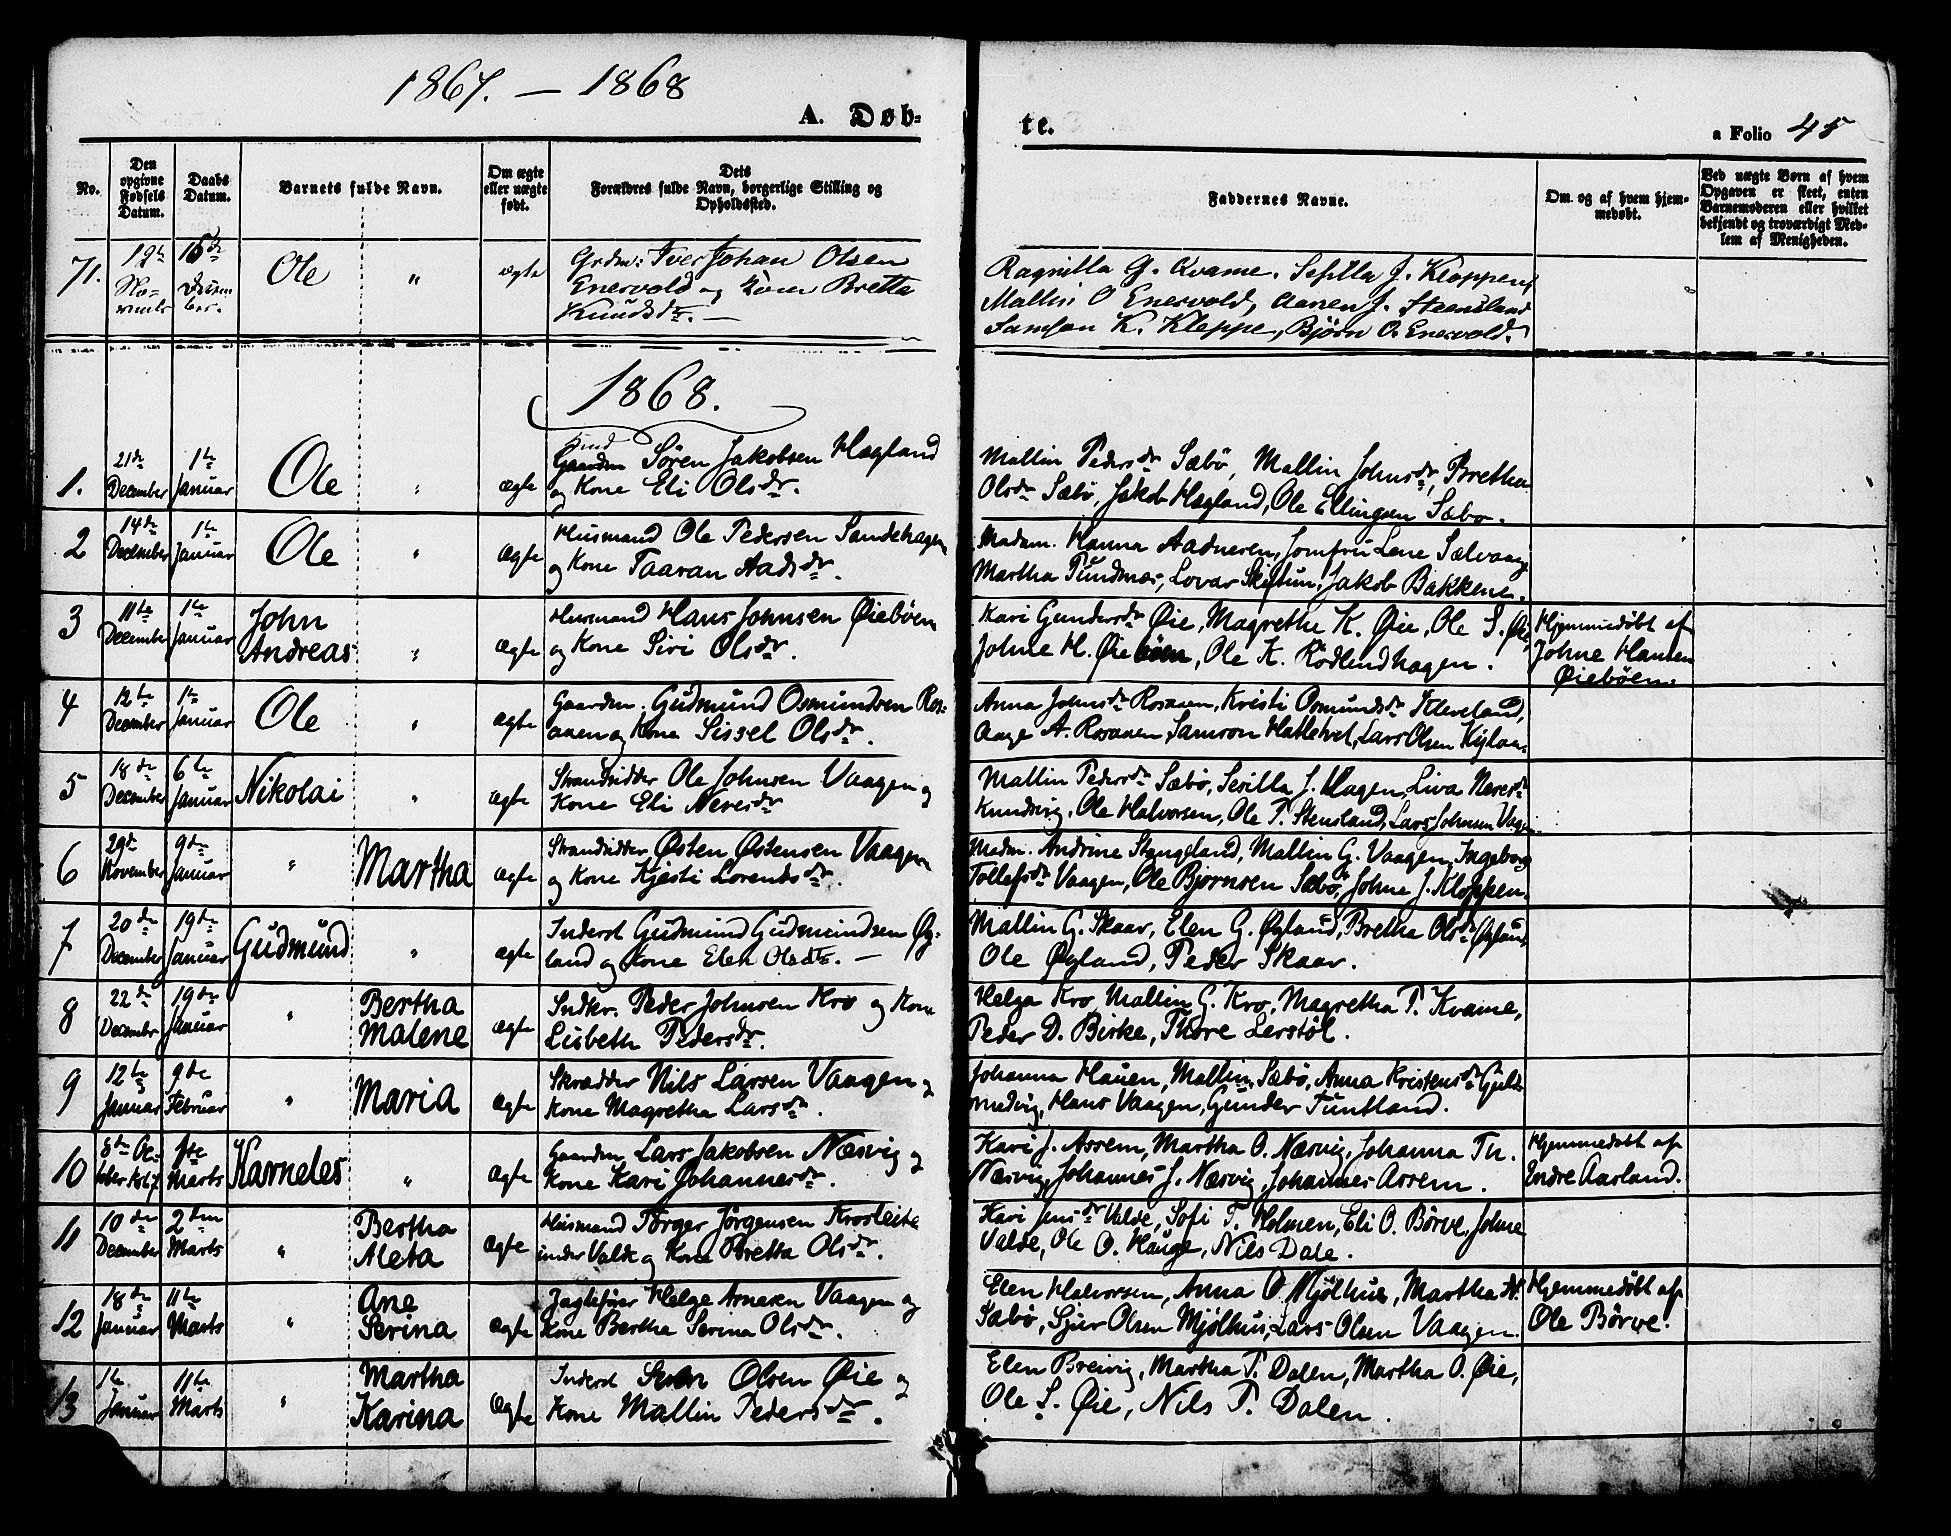 1867. — 1868
A. Døb-
te.
a Folio 45
No.
Den opgivne Fødsels Datum.
Daabs Datum.
Barnets fulde Navn.
Om ægte eller uægte født.
Dets Forældres fulde Navn, borgerlige Stilling og Opholdssted.
Faddernes Navne.
Om og af hvem hjemmedøbt.
Ved uægte Børn af hvem Opgaven er skeet, enten Barnemoderen eller hvilket bekjendt og troværdigt Medlem af Menigheden.
71.
19de
15de
Ole
"
ægte
Grdm: Iver Johan Olsen
Enersvold og Kone Bretta
Knudsdr. —
Ragnilla G. Kvame. Sesilla J. Kloppen,
Mallin O Enersvold, Aanen J. Steensland
Samson K. Kleppe, Bjørn O. Enersvold.
1868.
1.
21de December
1te Januar
Ole
"
Ægte
Gaardm Sören Jakobsen Hægland
og Kone Eli Olsdr.
Mallin Pedersdr Sæbö, Mallin Johnsdr, Bretha
Olsdr Sæbö, Jakob Hægland, Ole Ellingsen Sæbø.
2
14de December
1te Januar
Ole
"
Ægte
Husmand Ole Pedersen Sandehagen
og Kone Taaran Aadsdr.
Madam. Hanna Aadnesen, Jomfru Lene Sælvaag
Martha Tundnæs, Lovar Skiftun, Jakob Bakkene.
3
11te December
1te Januar
John
Andreas
"
Ægte
Husmand Hans Johnsen Øiebøen
og Kone Siri Olsdr.
Kari Gundersdr Øie, Magrethe K. Øie, Ole S. Øie
Johne H. Øiebøen, Ole K. Rödlendhagen.
Hjemmedöbt af
Johne Hansen
Øiebøen.
4
12te December
1te Januar
Ole
"
Ægte
Gaardm. Gudmund Osmundsen Ros-
anen og Kone Sissel Olsdr.
Anna Johnsdr Rosanen, Kristi Osmundsdr Kleveland,
Aage A. Rosanen, Samson Hattetvet, Lars Olsen
5
18de December
6te Januar
Nikolai
"
Ægte
Strandsidder Ole Johnsen Vaagen og
Kone Eli Neresdr
Mallin Pedersdr Sæbö, Sesilla J. Hagen, Liva Neresdr
Kundsvig, Ole Halvorsen, Ole T. Stensland, Lars Johnsen Vagen.
6
29de November
9de Januar
"
Martha
Ægte
Strandsidder Østen Østensen Vaagen
og Kone Kjesti Lorentsdr.
Madm. Andrine Stangeland, Mallin G. Vaagen, Ingeborg
Tollefsdr Vaagen, Ole Bjørnsen Sæbö, Johne J. Kloppen.
7
20de December
19de Januar
Gudmund
"
Ægte
Inderst Gudmund Gudmundsen Øg-
land og Kone Elen Olsdtr. —
Mallin G. Skaar, Elen G. Øgland, Bretha Olsdr Øgland,
Ole Øgland, Peder Skaar.
8
22de Decembr
19de Januar
"
Bertha
Malene
Ægte
Indkr. Peder Johnsen Kro og Kone
Lisbeth Pedersdr.
Helga Kro, Mallin G. Kro, Magretha T. Kvame,
Peder D. Birke, Thore Lerstöl.
9
12te Januar
9de Februar
"
Maria
Ægte
Skrædder Nils Larsen Vaagen og
Kone Magretha Larsdr.
Johanna Hauen, Mallin Sæbö, Anna Kristensdr Guld-
smedvig, Hans Vaagen, Gunder Tuntland.
10
8de Oc-
tober 1867
1ste Marts
Karneles
"
Ægte
Gaardm Lars Jakobsen Næsvig og
Kone Kari Johannesdr.
Kari J. Assem, Martha O. Næsvig, Johanna Th.
Næsvig, Johannes J. Næsvig, Johannes Assem.
Hjemmedöbt af
Endre Aarland.
11
10de December
2den Marts
"
Bertha
Aleta
Ægte
Husmand Törger Jörgensen Krosleite
under Valde og Kone Bretta Olsdr.
Kari Jensdr Valde, Sofi T. Holmen, Eli O. Börve, Johne
Valde, Ole O. Hauge, Nils Dale.
12
18de Januar
11te Marts
"
Ane
Serina
Ægte
Jagtefører Helge Arnesen Vaagen og
Kone Bertha Serina Olsdr.
Elen Halvorsen, Anna O Mjölhus, Martha H.
Sæbö, Sjur Olsen Mjölhus, Lars Olsen Vaagen.
Hjemmedöbt af
Ole Börve.
13
1te Januar
11te Marts
"
Martha
Karina
Ægte
Inderst Sven Olsen Øie og
Kone Mallin Pedersdr.
Elen Breivig, Martha T. Dalen, Martha O. Øie,
Ole S. Øie, Nils T. Dalen.